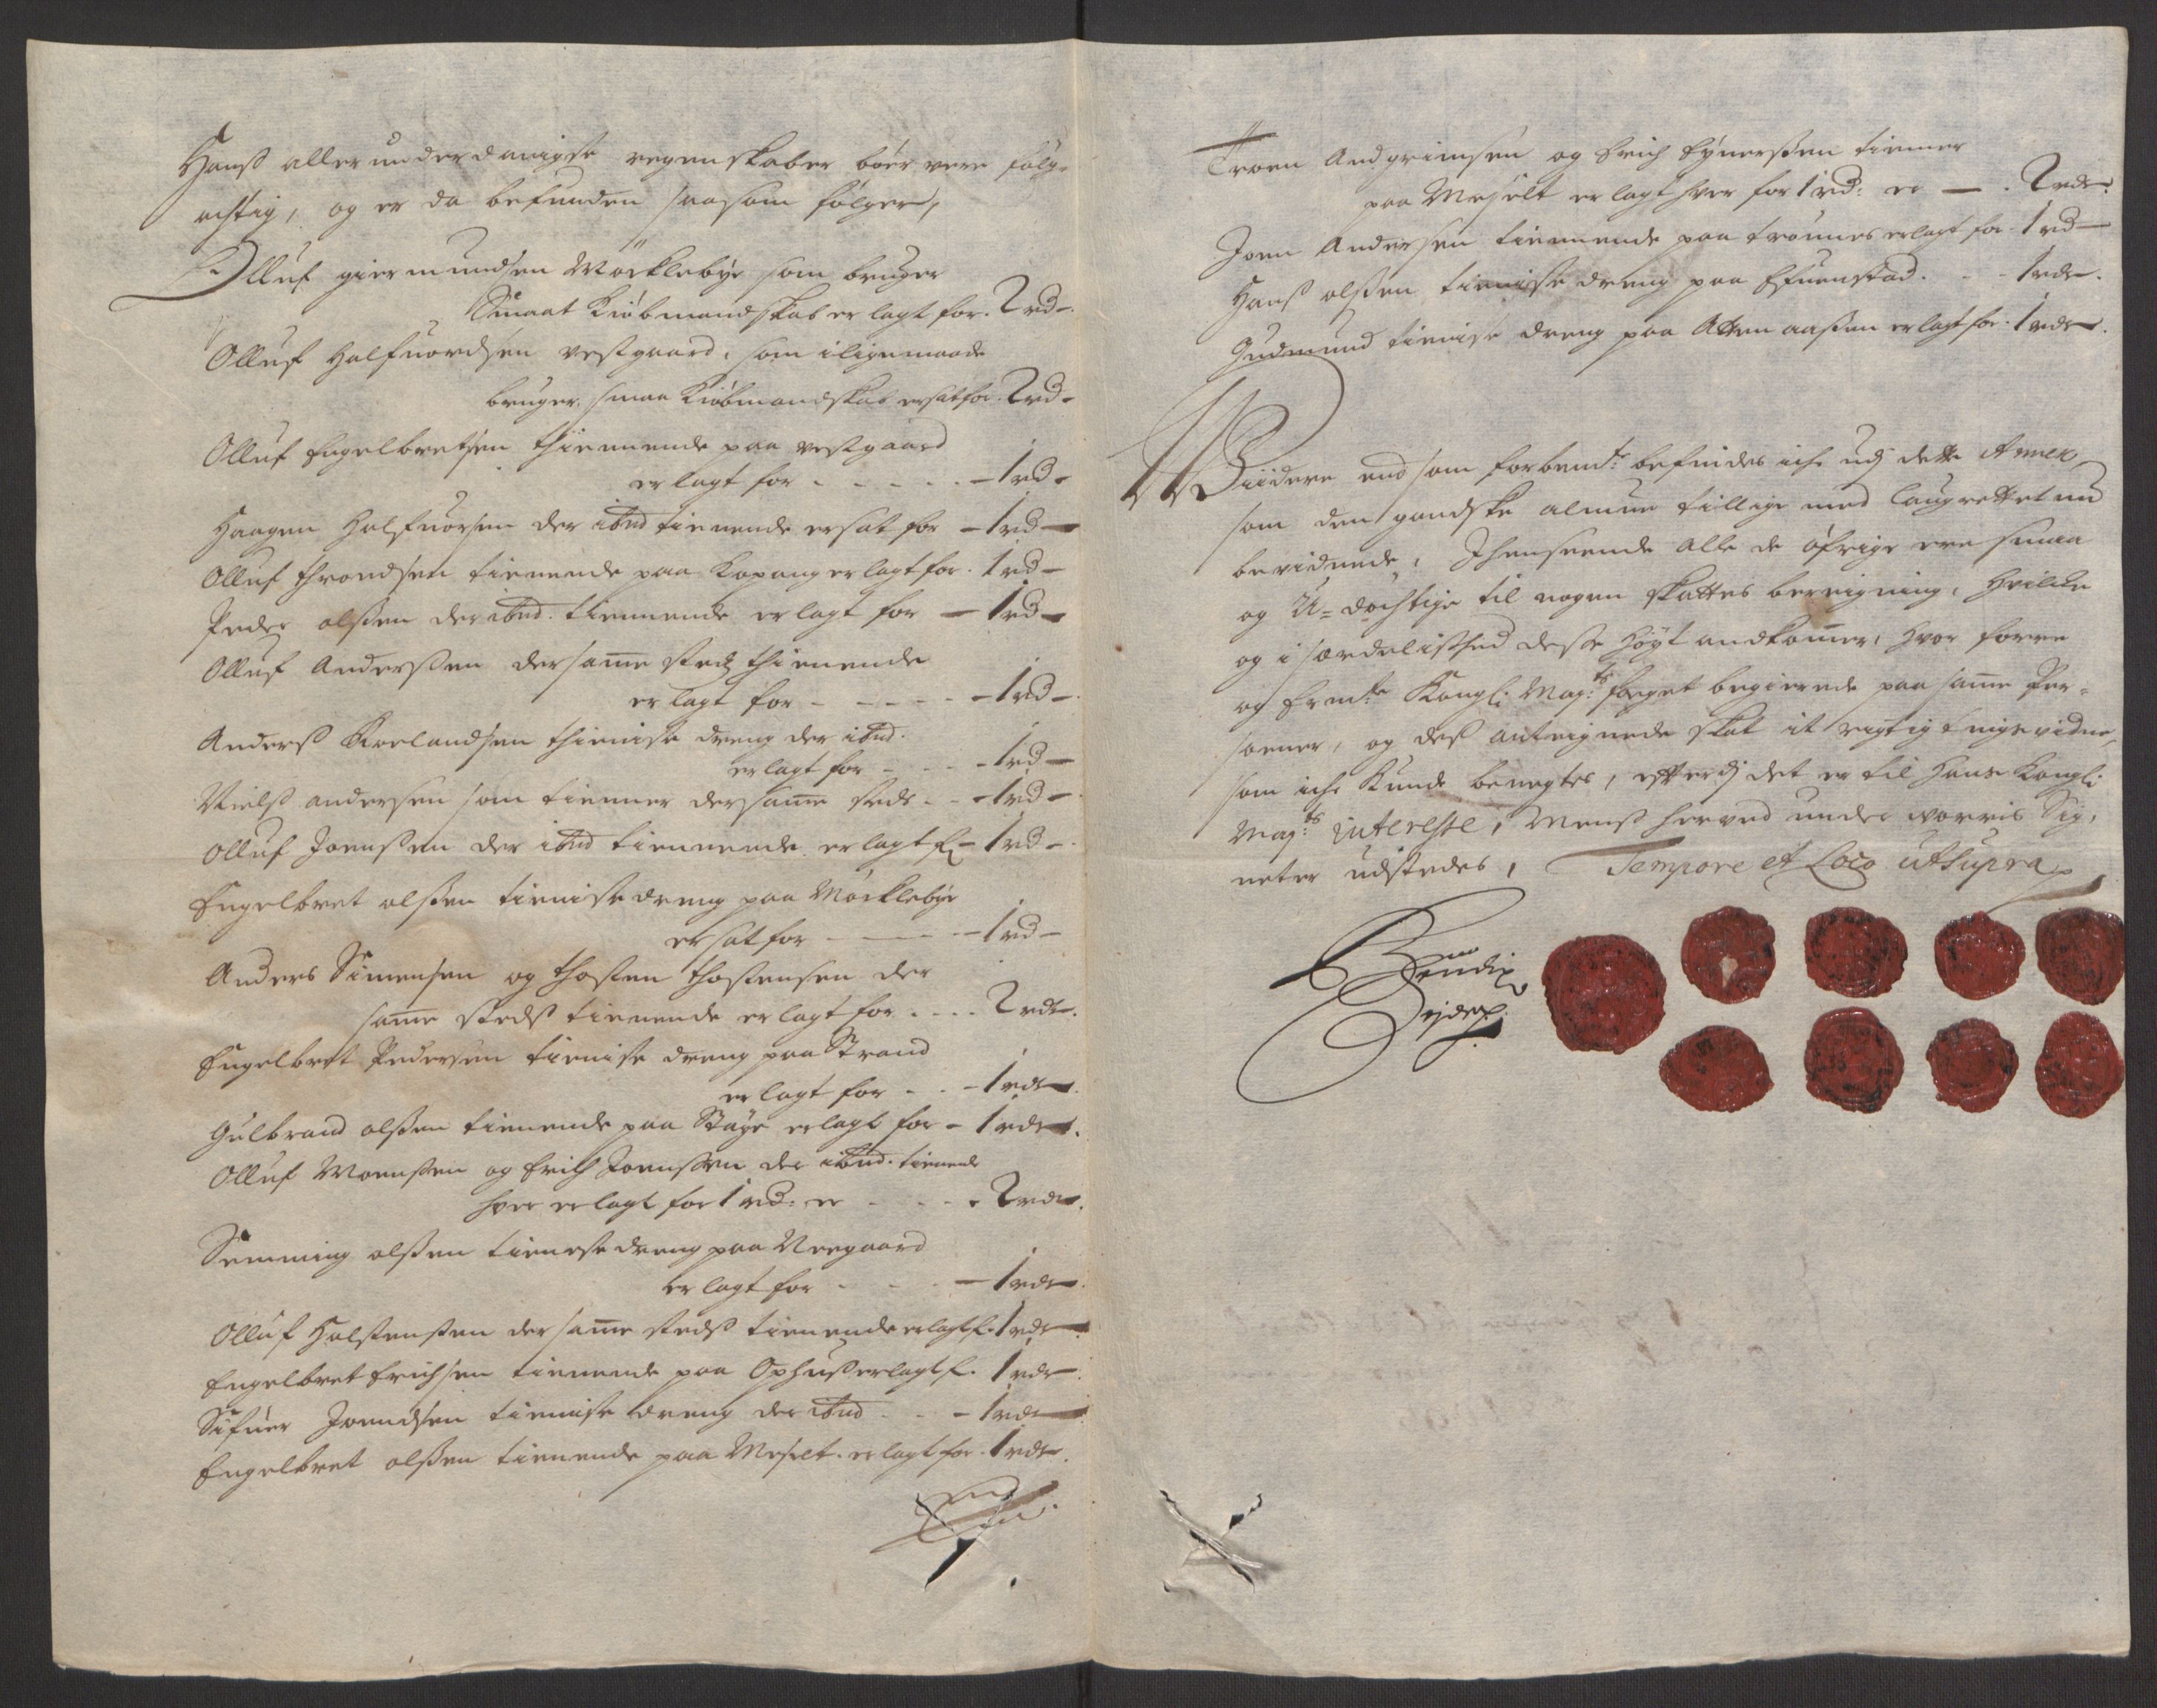 Hanß allerunderdanigste regenskaber bør være følg-
achtig, og er da befunden saasom følger,
Olluf giermundsen Møcklebye som bruger
Smaat Kiøbmandskab er lagt for. 2 rd-
Olluf Halfuordsen vestgaard, som iligemaade
bruger smaa Kiøbmandskab er sat for 2 rd-
Olluf Engelbretsen thiennende paa vestgaard
er lagt for - - - - - 1 rd-
Haagen Halfuorsen der ibnd tienende er sat for - 1 rd-
Olluf throndsen tienende paa Kopang er lagt for. 1 rd-
Peder olßen der ibnd. tiennende er lagt for - 1 rd-
Olluf Anderßen der same sted thienende
er lagt for - - - - - 1 rd-
Anderß Roelandsen thieniste dreng der ibnd.
er lagt for - - - 1 rd-
Nielß andersen som tienner der same steds - - 1 rd-
Olluf Joenßen der ibnd tiennende er lagt f - 1 rd-
Engelbret olßen tieniste dreng paa Møcklebye
er sat for - - - 1 rd-
Anders Simensen og Thosten Thostensen der
same stedß tienende er lagt for - - - 2 rdr.
Engelbret Pedersen tieniste dreng paa Strand
er lagt for - - - 1 rdr.
Gulbrand olßen tienende paa Stage er lagt for - 1 rdr.
Olluf Moenßen og Erich Joenssen der ibnd. tienende
hver er lagt for 1 rd: er - - - 2 rdr.
Semming olßen tieneste dreng paa Neegaard
er lagt for - - - 1 rdr.
Olluf Halstenßen der same stedß tienende er lagt f. 1 rdr
Engelbret Erichsen tienende paa Ophuß er lagt f. 1 rdr
Sifuer Joendsen tieniste dreng der ibnd - - 1 rdr
Engelbret olßen tienende paa Messelt er lagt for. 1 rdr.
Troen Andgrimsen og Erich Eynerßen tienner
paa Messelt er lagt hver for 1 rd: er - . 2 rdr.
Joen Andersen tiennende paa trønnes er lagt for. 1 rd-
Hanß olßen tieniste dreng paa Efuenstad. - - 1 rdr.
Gudmund tieniste dreng paa Atten aaßen er lagt for. 1 rdr.
Viidere end som forbemte befindes iche udj dette Annex
som den gandske almue tillige med laugrettet nu
beviduede, Ihenseende alle de øfrige ere smaa
og U=dochtige til nogen skattes beregning, hvilke
og i særdelished desse høyt andkomer, hvor forre
og Kongl: Mayts foget begierede paa same Per-
soener, og deß anteignede skat it rigtig tingsvidne,
som iche kunde benegtes, efterdj det er til Hans Kongl:
Mayts interesse, Menß herved under vorris Sig,
neter udstedes, Tempore et Loco ut supra
Bendix